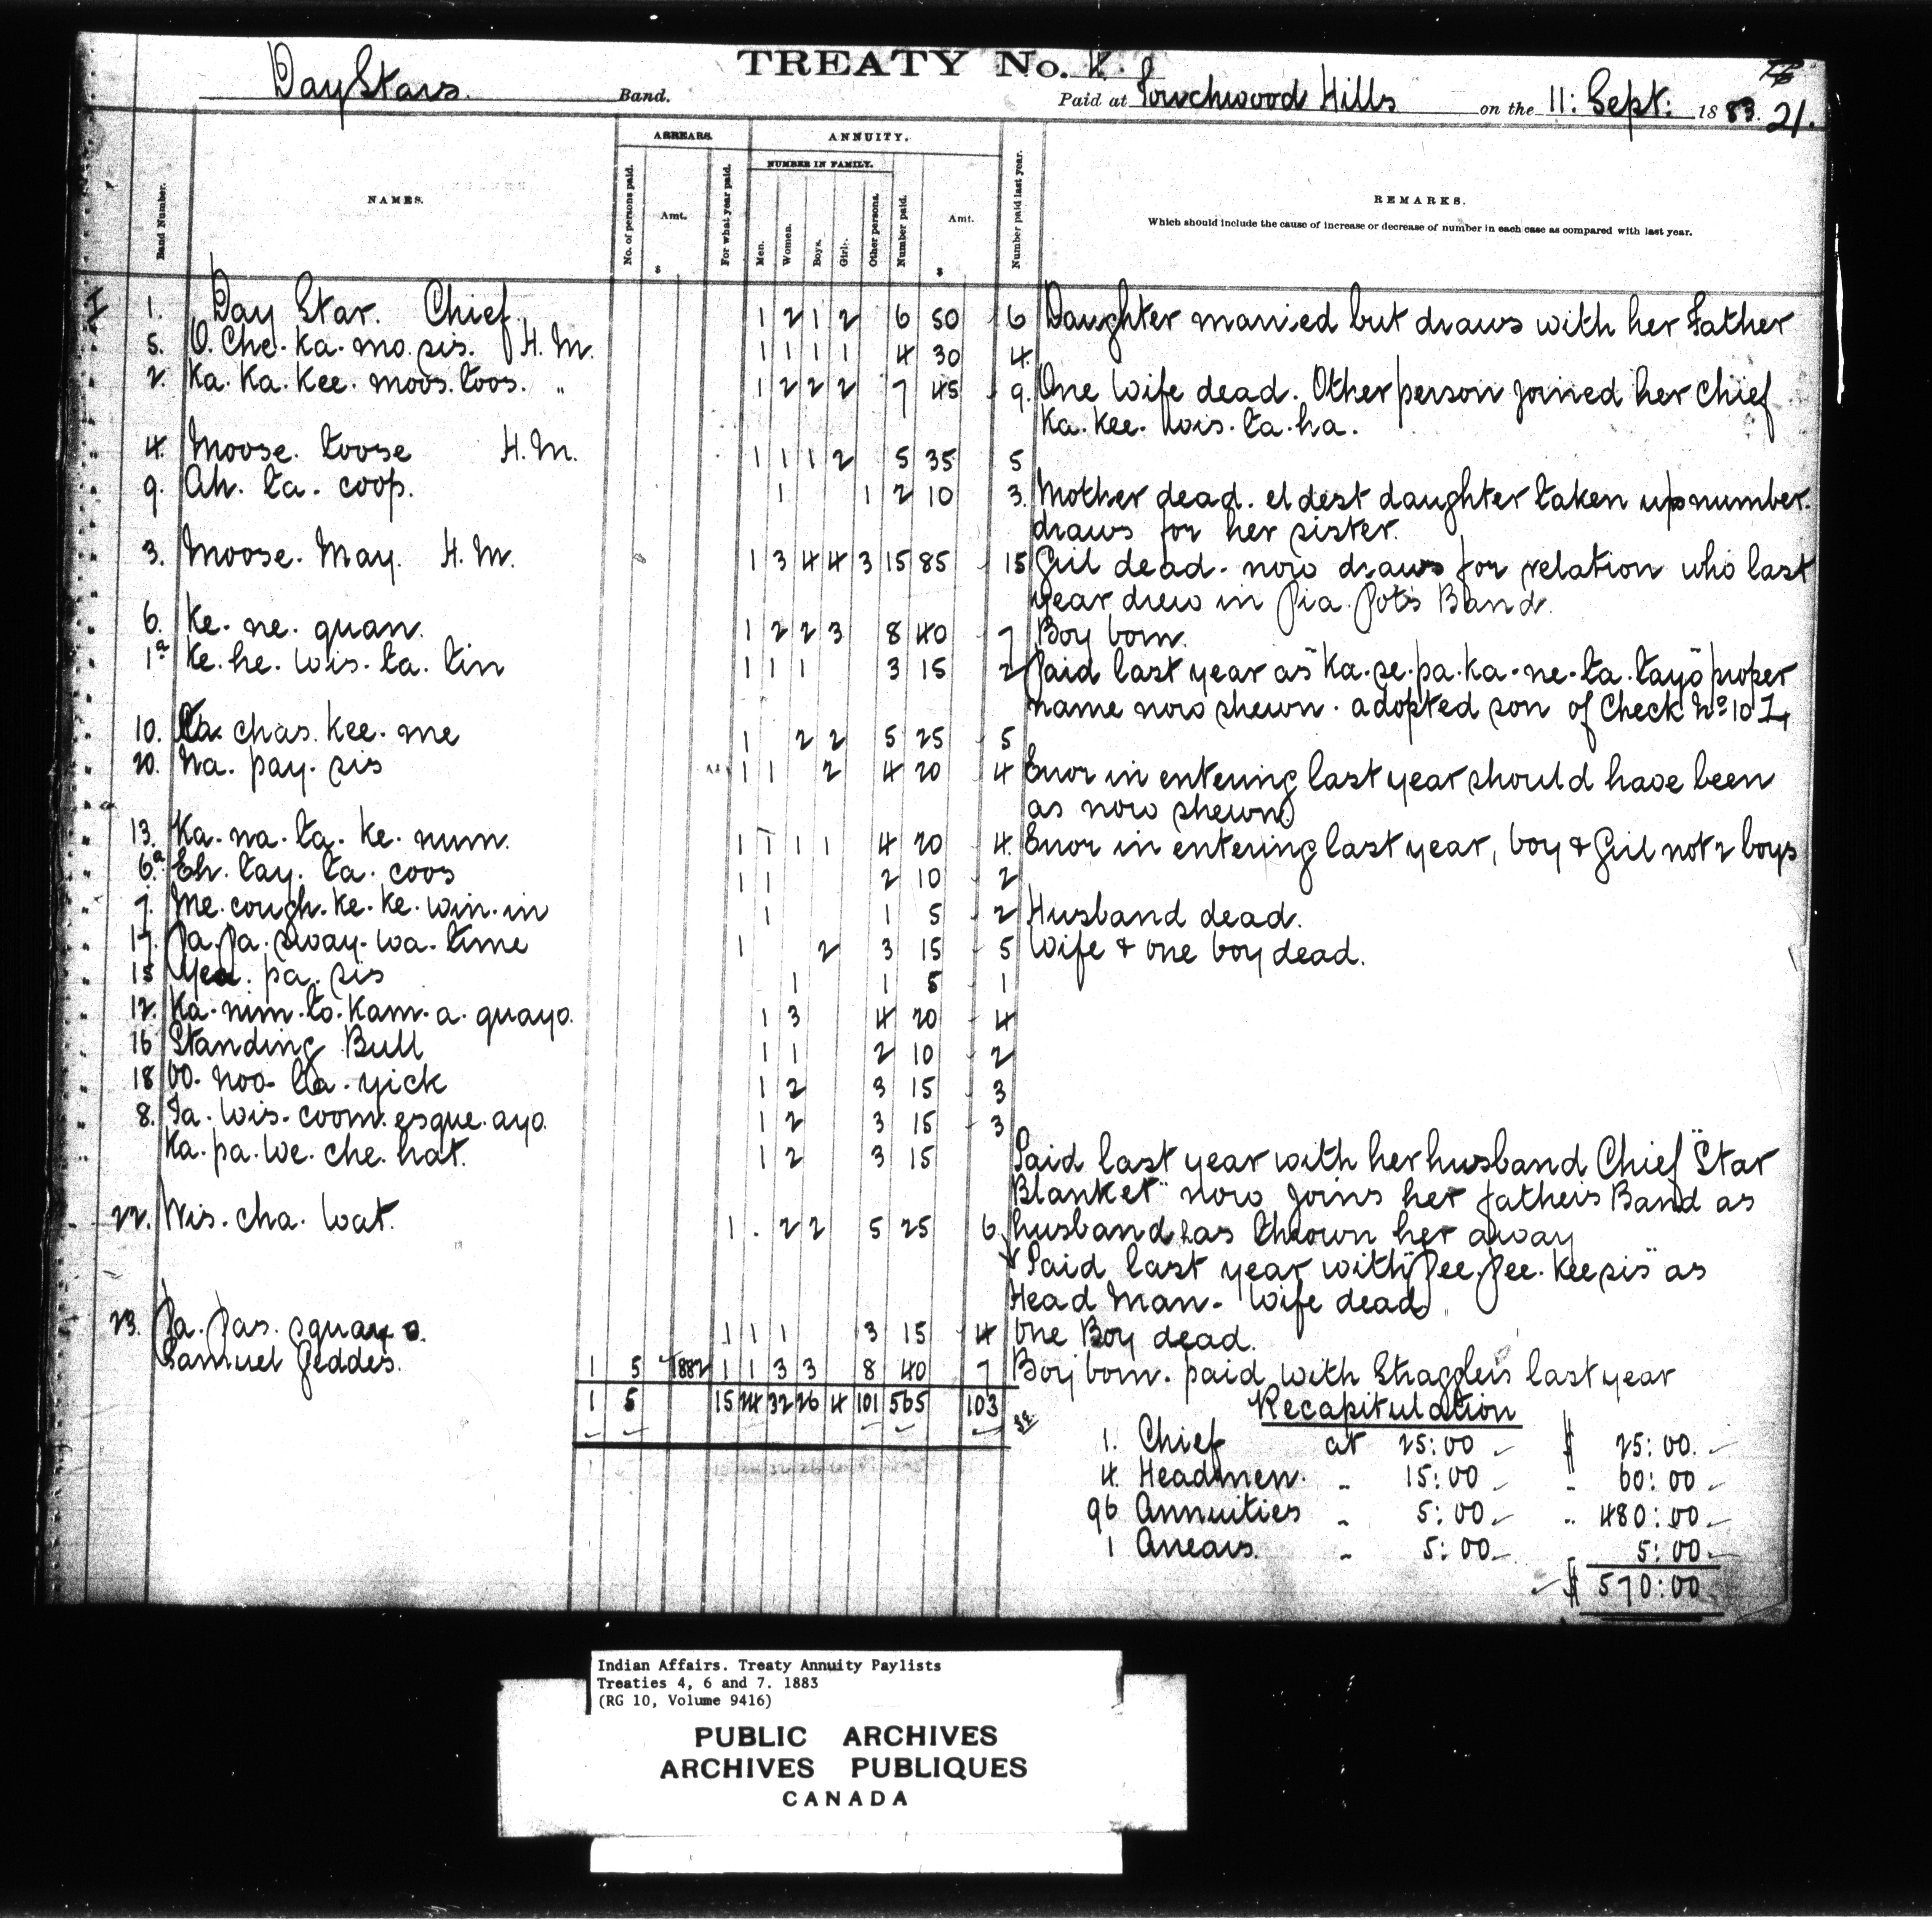 TREATY No. 4.
Day Stars Band. Paid at Touchwood Hills on the 11: Sept: 1883. 21.
ARREARS. ANNUITY.
NUMBER IN FAMILY.
Band Number. NAMES. No. of persons paid. Amt. $ For what year paid. Men. Women. Boys. Girls. Other persons. Number paid. Amt. $ Number paid last year. REMARKS.
Which should include the cause of increase or decrease of number in each case as compared with last year.
1. Day Star. Chief. 1 2 1 2 6 50 6 Daughter married but draws with her Father
5. O. Che. ka. mo. sis. H. M. 1 1 1 1 4 30 4.
2. Ka. Ka. Kee. moos. toos. " 1 2 2 2 7 45 9. One wife dead. Other person joined her Chief
Ka. Kee. wis. ta. ha.
4. Moose. toose H. M. 1 1 1 2 5 35 5
9. Ah. ta. coop. 1 1 2 10 3. Mother dead. eldest daughter taken up number.
draws for her sister.
3. Moose. May. H. M. 1 3 4 4 3 15 85 15 Girl dead. now draws for relation who last
year drew in Pia. Pots Band.
6. Ke. ne. quan. 1 2 2 3 8 40 7 Boy born.
1a Ke. he. wis. ta. tin 1 1 1 3 15 2 Paid last year as "Ka. se. pa. ka. ne. ta. tayo" proper
name now shewn. adopted son of Check No 10 I
10. chas. kee. me 1 2 2 5 25 5
20. Na. pay. sis 1 1 2 4 20 4 Error in entering last year should have been
as now shewn
13. Ka. na. ta. ke. num. 1 1 1 1 4 20 4. Error in entering last year, boy & Girl not 2 boys
6a Eh. tay. ta. coos 1 1 2 10 2
7. Me. cough. ke. ke. win. in 1 1 5 2 Husband dead.
17. Pa. Pa. sway. wa. time 1 2 3 15 5 Wife & one boy dead.
15 Yea. pa. sis 1 1 5 1
12. Ka. nim. to. kam. a. quayo. 1 3 4 20 4
16 Standing Bull 1 1 2 10 2
18 OO. noo. ta. yick 1 2 3 15 3
8. Ta. wis. coom. esque. ayo. 1 2 3 15 3
Ka. pa. we. che. hat. 1 2 3 15 Paid last year with her husband Chief "Star
Blanket" now joins her fathers Band as
22. Wis. cha. wat. 1 . 2 2 5 25 6 husband has thrown her away
Paid last year with "Pee. Pee. Keesis" as
Head Man. Wife dead
23. Pa. Pas. squay o. 1 1 1 3 15 4 One Boy dead.
Samuel Geddes. 1 5 1882 1 1 3 3 8 40 7 Boy born. paid with Stragglers last year
1 5 15 24 32 26 4 101 565 103 Recapitulation
1. Chief at 25:00 $ 25:00.
4. Headmen. " 15:00 " 60:00
96 Annuities " 5:00 " 480:00
1 Arrears. " 5:00 5:00
$ 570:00
Indian Affairs. Treaty Annuity Paylists
Treaties 4, 6 and 7. 1883
(RG 10, Volume 9416)
PUBLIC ARCHIVES
ARCHIVES PUBLIQUES
CANADA